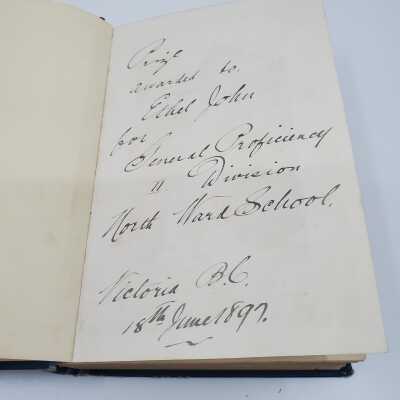 Prize
awarded to
Ethel John
for
General Proficiency
II Division
North Ward School.
Victoria B.C.
18th June 1897.